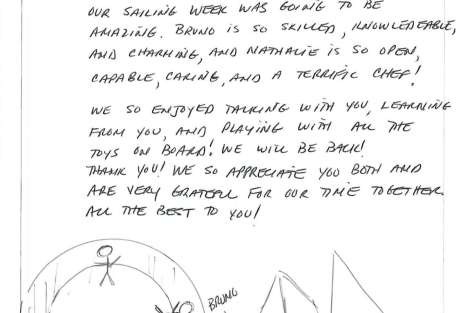 OUR SAILING WEEK WAS GOING TO BE
AMAZING. BRUNO IS SO SKILLED, KNOWLEDEABLE,
AND CHARMING, AND NATHALIE IS SO OPEN,
CAPABLE, CARING, AND A TERRIFIC CHEF!
WE SO ENJOYED TALKING WITH YOU, LEARNING
FROM YOU, AND PLAYING WITH ALL THE
TOYS ON BOARD! WE WILL BE BACK!
THANK YOU! WE SO APPRECIATE YOU BOTH AND
ARE VERY GRATEFUL FOR OUR TIME TOGETHER.
ALL THE BEST TO YOU!
BRUNO